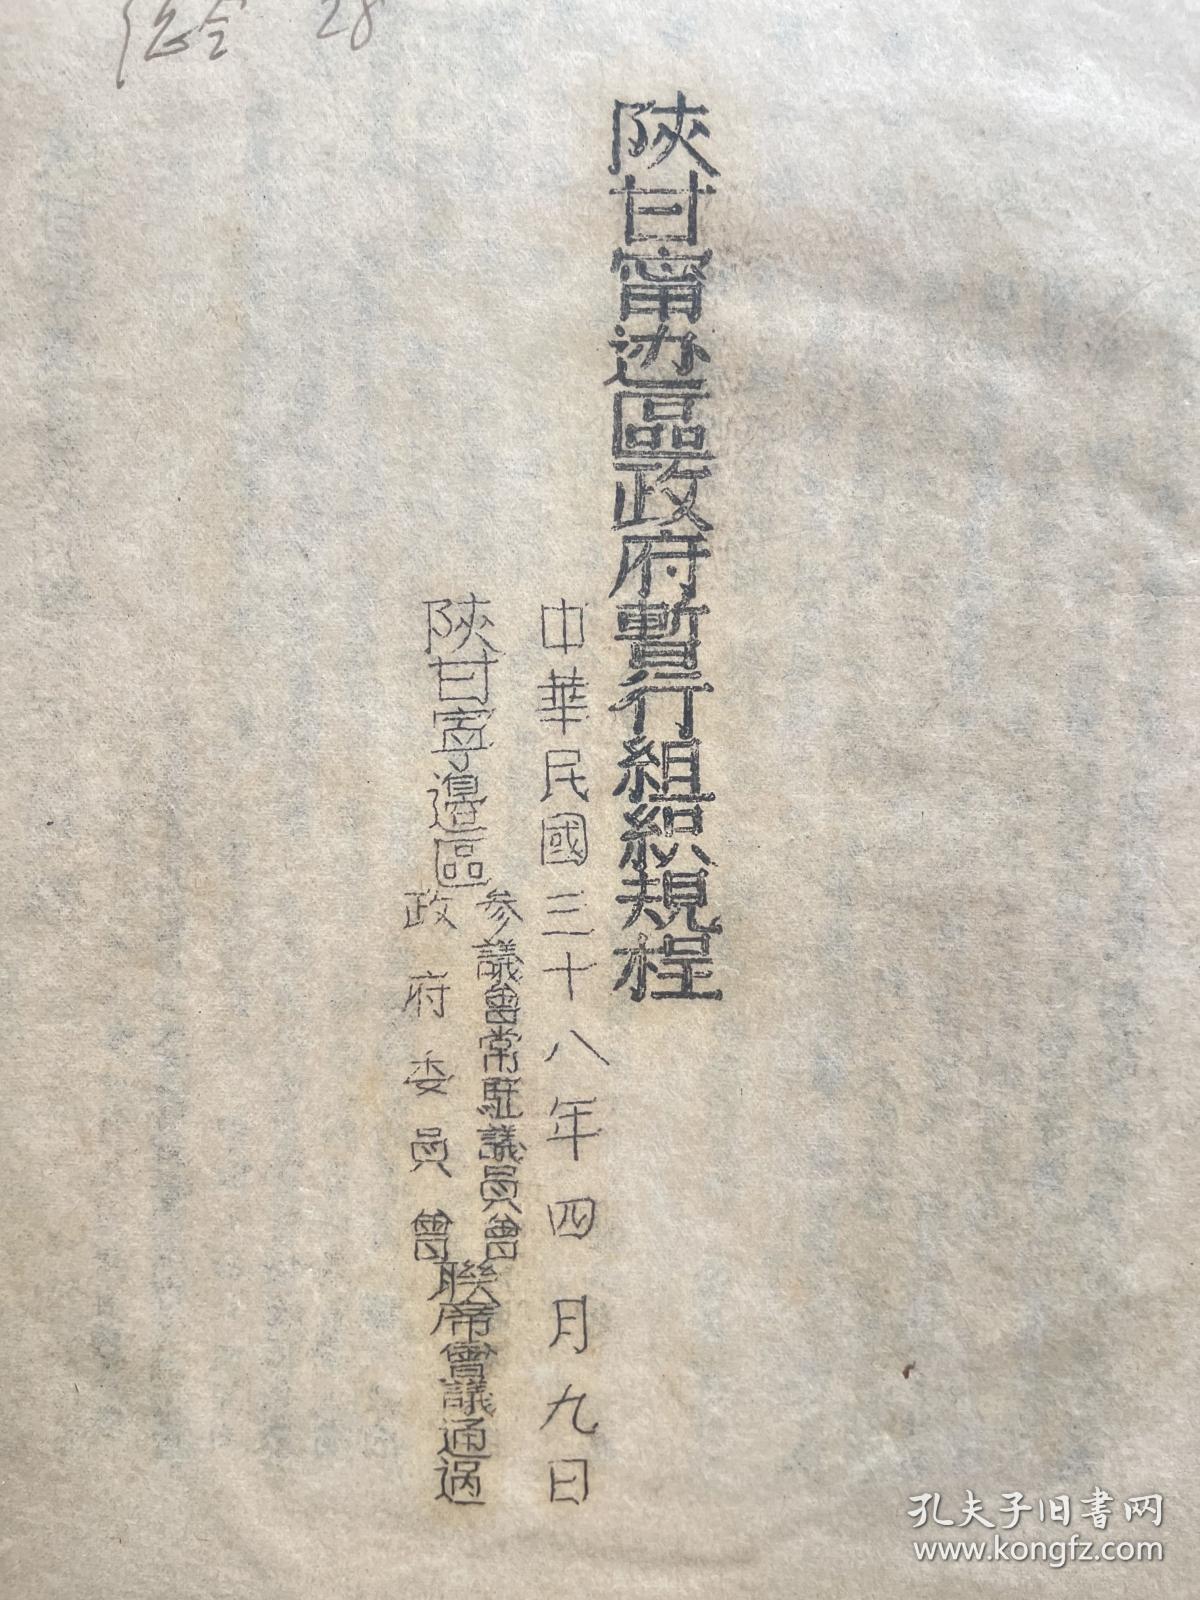 28
陝甘甯边區政府暫行組織規程
中華民國三十八年四月九日
陝甘寧邊區
参議會常駐議員會
政府委員會
聯席會議通過
孔夫子旧书网
www.kongfz.com